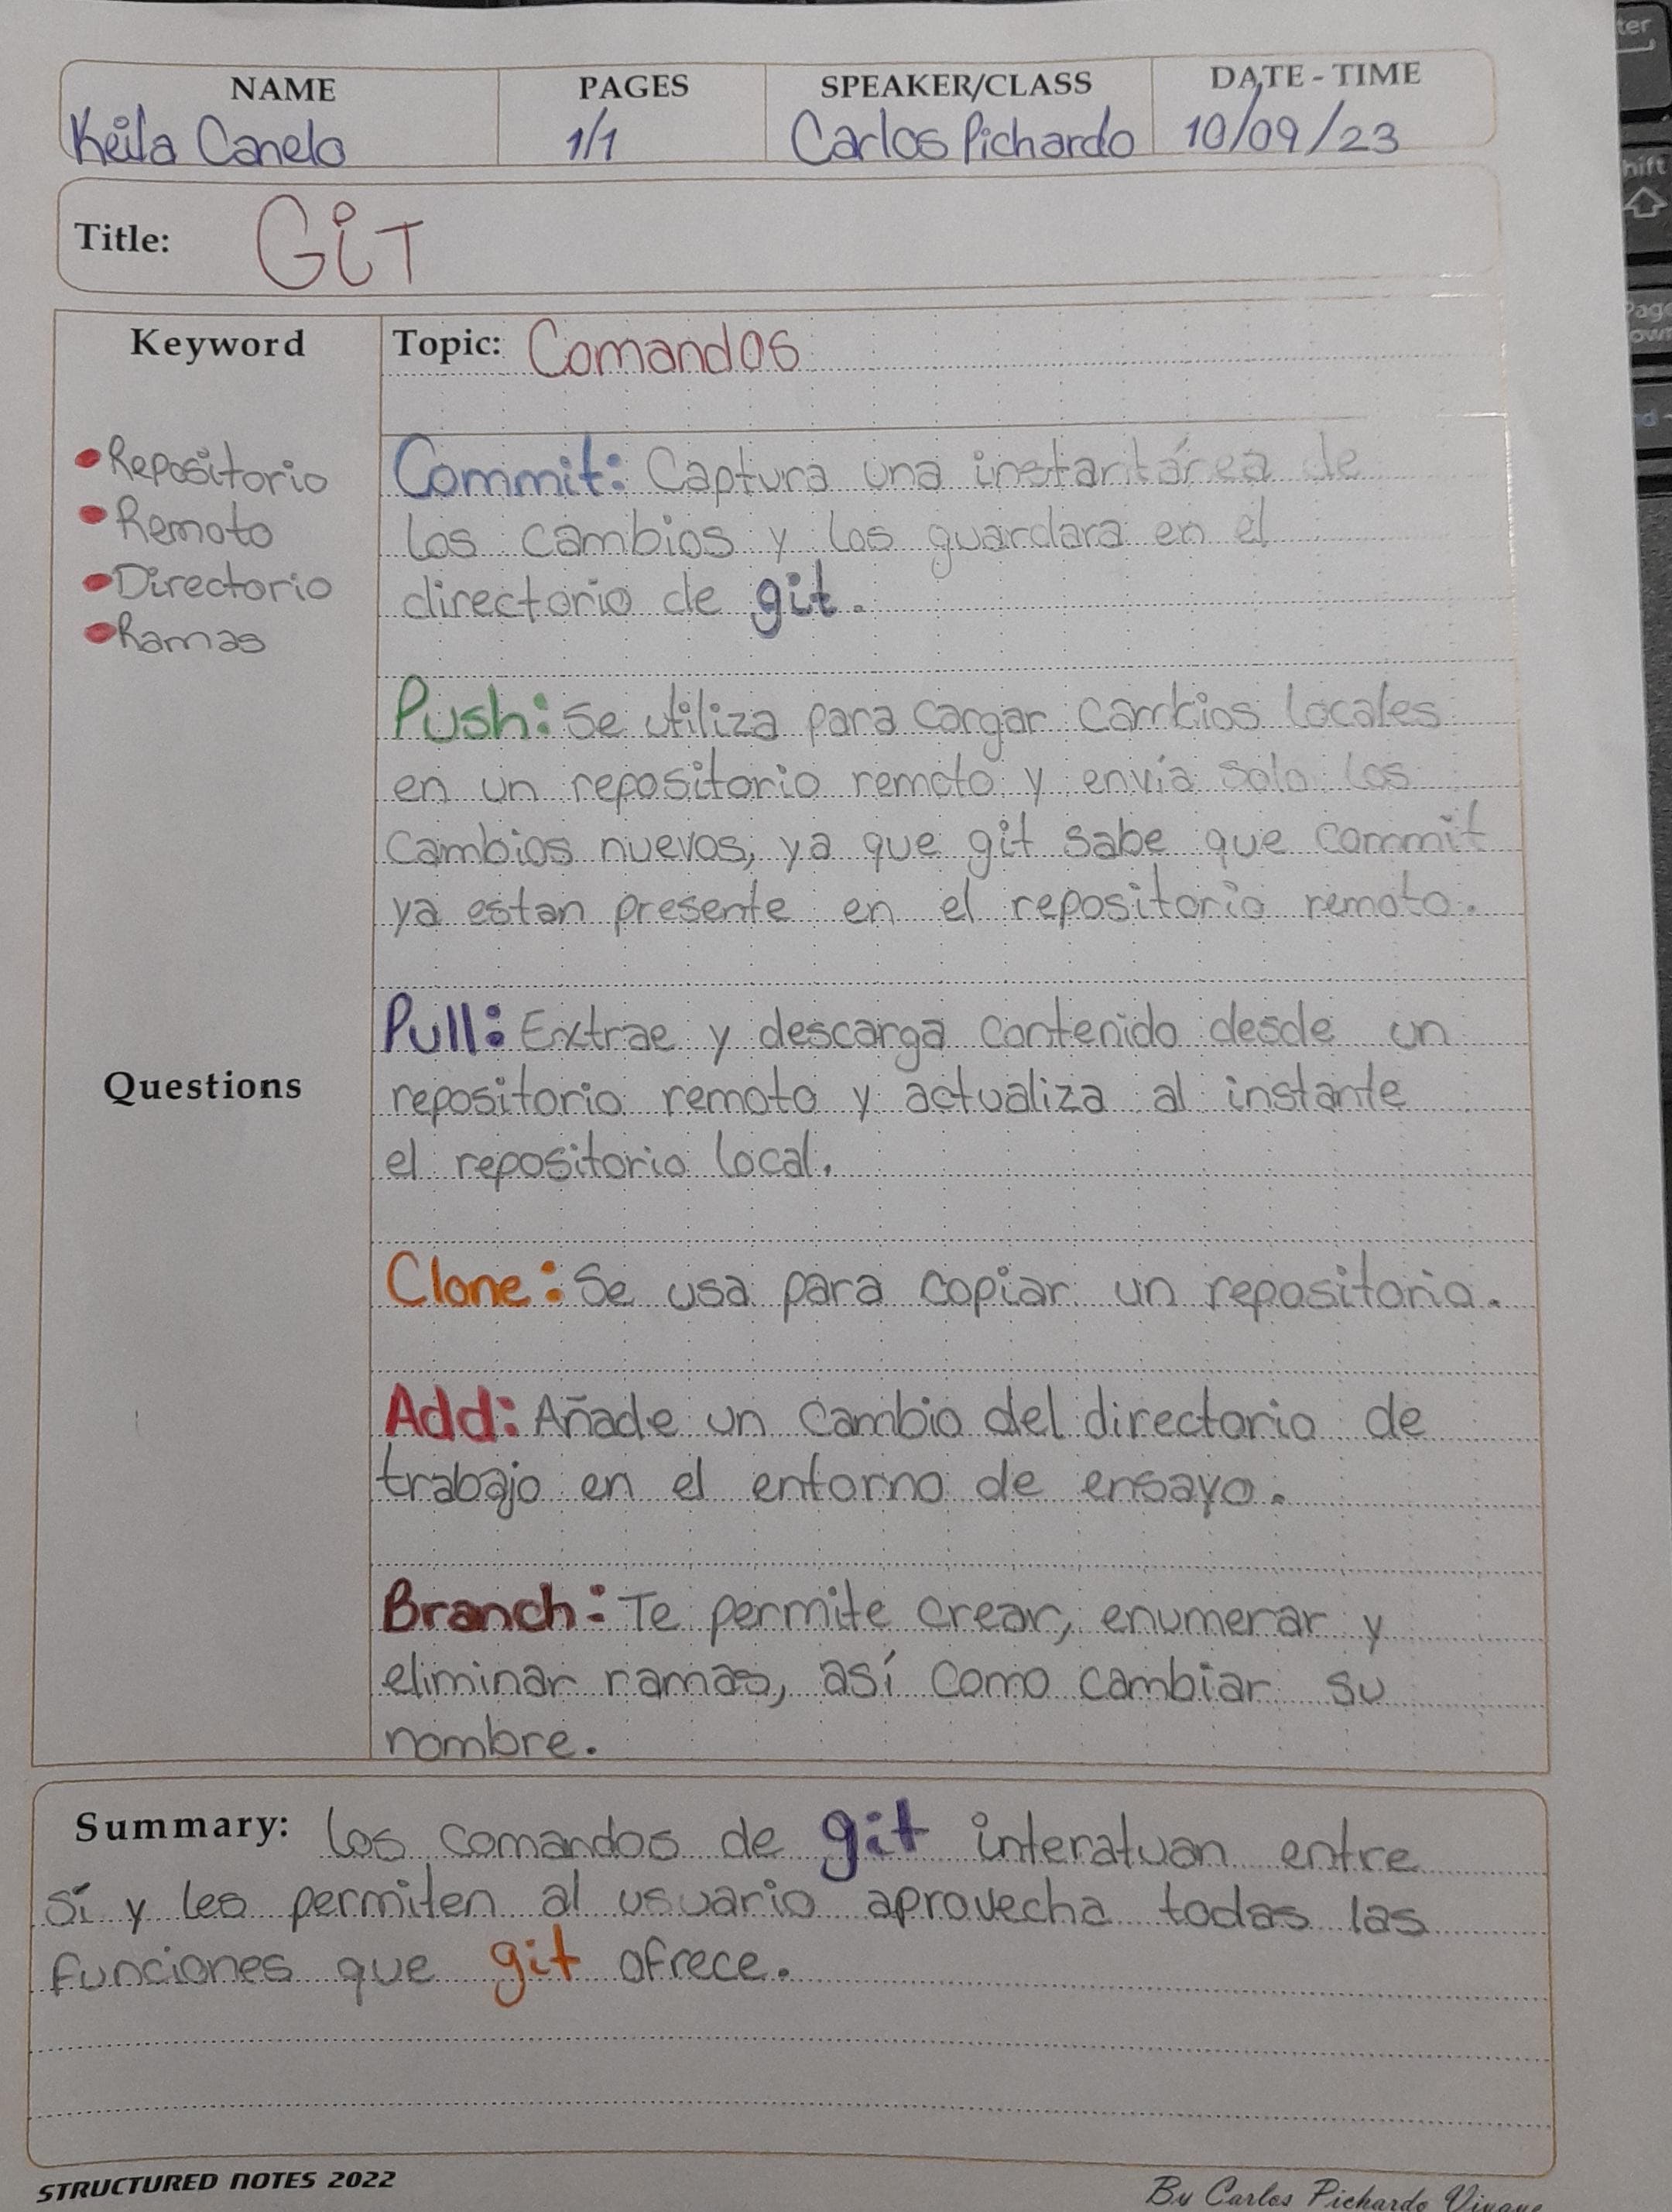 NAME PAGES SPEAKER/CLASS DATE-TIME
Keila Canelo 1/1 Carlos Pichardo 10/09/23
Title: GiT
Keyword
Topic: Comandos
• Repositorio
• Remoto
• Directorio
• Ramas
Commit: Captura una instantánea de
los cambios y los guardara en el
directorio de git.
Push: Se utiliza para cargar cambios locales
en un repositorio remoto y envía solo los
Cambios nuevos, ya que git sabe que commit
ya estan presente en el repositorio remoto.
Pull: Extrae y descarga contenido desde un
repositorio remoto y actualiza al instante
el repositorio local.
Questions
Clone: Se usa para copiar un repositorio.
Add: Añade un cambio del directorio de
trabajo en el entorno de ensayo.
Branch: Te permite crear, enumerar y
eliminar ramas, así como cambiar su
nombre.
Summary: los comandos de git interatuan entre
sí y les permiten al usuario aprovecha todas las
funciones que git ofrece.
STRUCTURED NOTES 2022
By Carlos Pichardo
ter
hift
Page